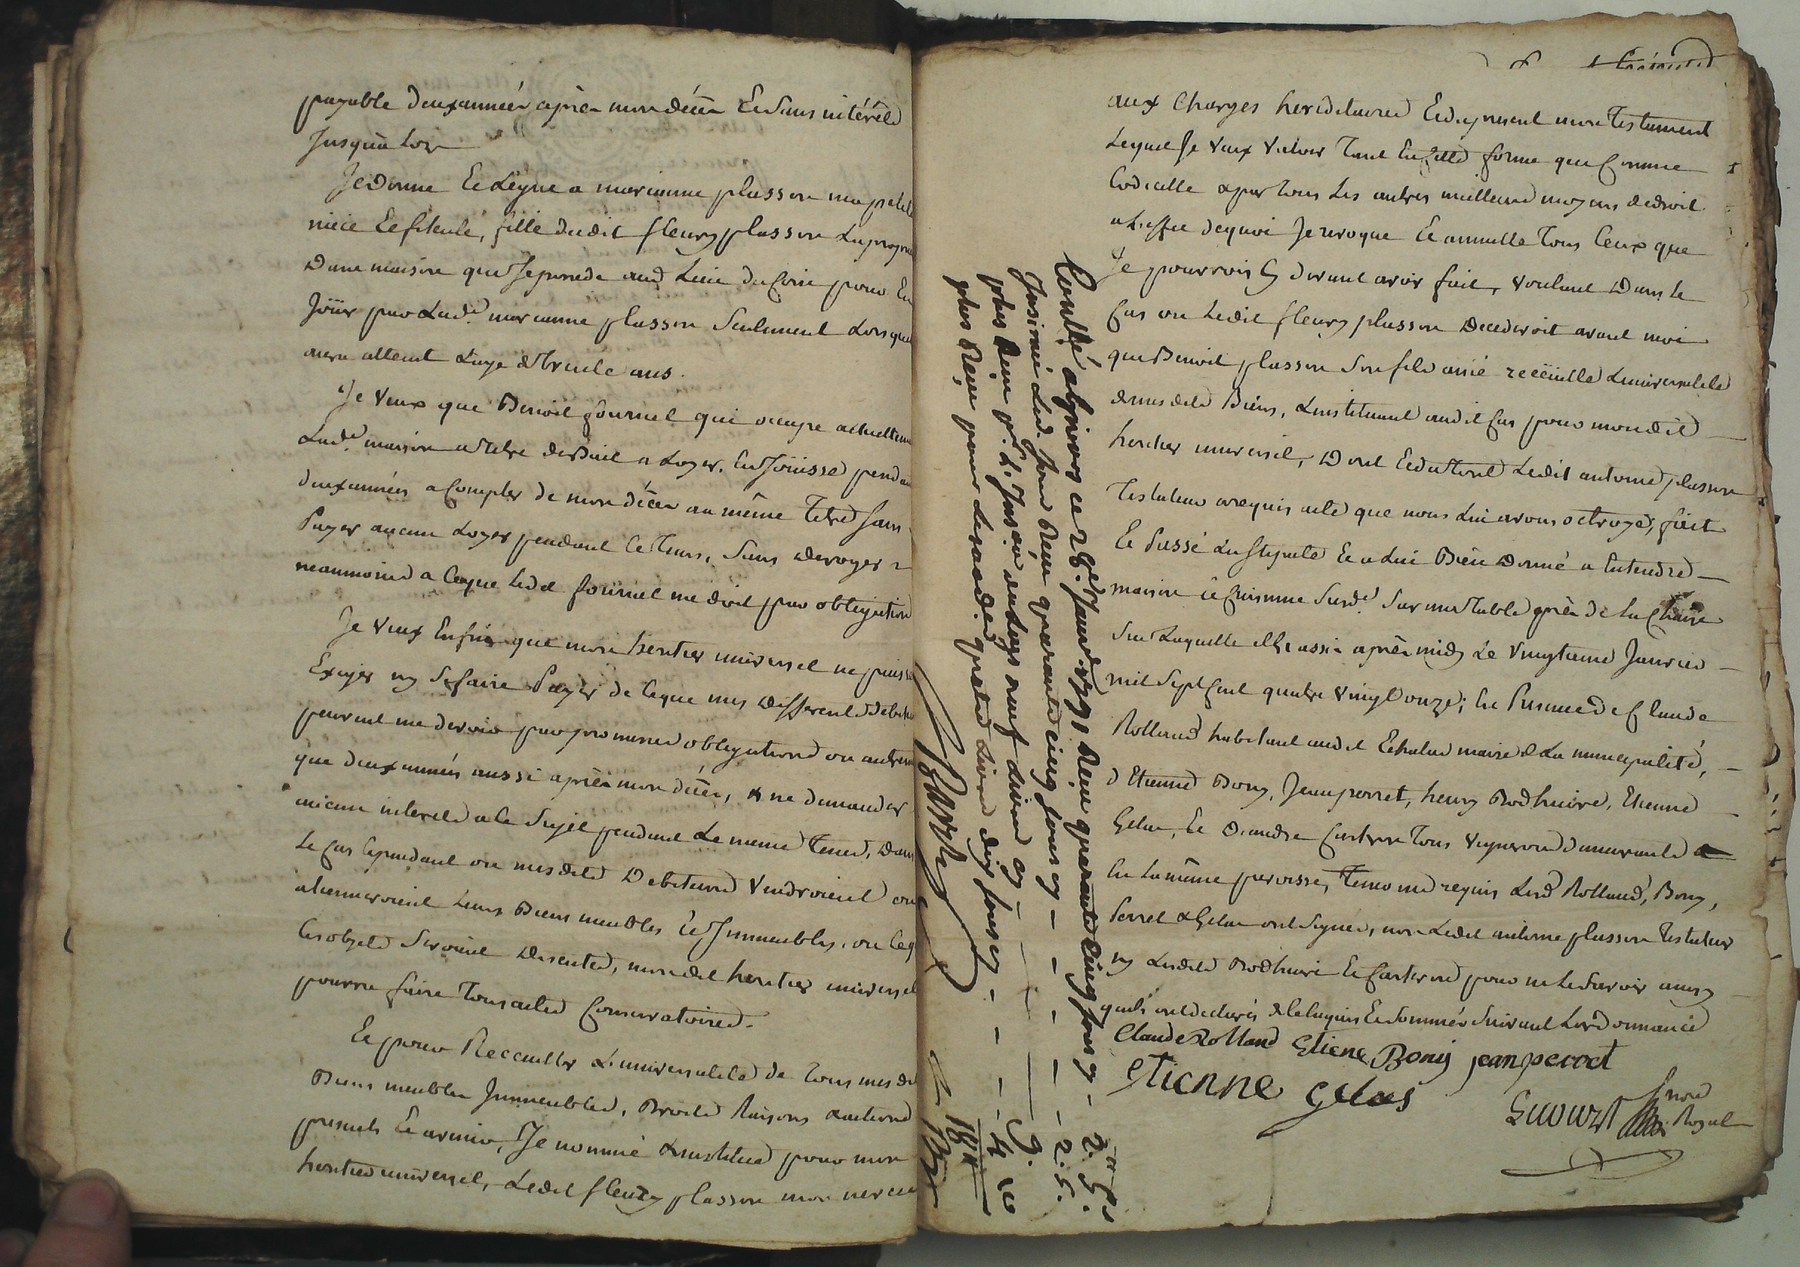 payable deux années après mon décès Et sans intérêts
Jusqu'à lors
Je donne Et Lègue a marianne plasson ma petite
niéce Et filieule, fille dudit fleury plasson La propriété
D'une maison que Je possede aud. Lieu du Coin pour En
Joüir par Lad.e marianne plasson Seulement Lorsqu
aura atteint L'age de trente ans.
Je veux que Benoit fournel qui occupe actuellem
Lad.e maison a titre de Bail a Loyer, En Joüisse pendan
deux années a Compter de mon décès au même titre sans
Payer aucun Loyer pendant ce tems, sans deroger
neanmoins a Ceque Led.t fournel me doit par obligation
Je veux Enfin que mon heritier universel ne puisse
Exiger ny se faire Payer de Ceque mes differents debite
peuvent me devoir par promesses obligations ou autrem
que deux années aussi après mon décès, ne demander
aucun interets a ce Sujet pendant Le meme tems, Dans
Le Cas Cependant ou mesdits Debiteurs vendroient ou
alieneroient Leurs Biens meubles Et Immeubles, ou Ceq
les objets seroient Discutés, mondit heritier universel
pourra faire tous actes Conservatoires.
Et pour Recceuillir L'universalité de tous mesd.
Biens meubles Immeubles, Droits Raisons & actions
presents Et avenir, Je nomme & institue pour mon
heritier universel, Ledit fleury plasson mon neveu
aux Charges hereditaires Et du present mon testament
Lequel Je veux valoir tant En Cette forme que Comme
Codicille & par tous Les autres meilleurs moyens de droit
a L'effet de quoi Je revoque Et annulle tous Ceux que
Je pourrois Cy devant avoir fait, voulant Dans Le
Cas ou Ledit fleury plasson decederoit avant moi
que Benoit plasson Son fils ainé receüille L'universalité
de mesdits Biens, L'instituant audit Cas pour mondit
heritier universel, Dont Et du tout Ledit antoine plasson
testateur a requis acte que nous Lui avons octroyé; fait
Et Passé Lu stipulé Et a Lui Bien Donné a Entendre
maison Et Cuisine Susd.e Sur une table près de La Chaire
Sur Laquelle il Est assis après midy Le vingtieme Janvier
mil sept Cent quatre vingt onze; En Presence de Claude
Rolland habitant aud.t Echalas maire de La municipalité,
d'Etienne Bony, Jean perret, henry Bodhuire, Etienne
Gelas, Et Demeurants
En La même paroisse, temoins requis Lesd. Rolland, Bony,
Perret & Gelas ont Signé, non Ledit antoine plasson testateur
ny Lesdits Bodhuire Et pour ne Le savoir ainsy
qu'ils ont declarés de Ce Enquis Et Sommés Suivant L'ordonnance
Claude Rolland Etiene Bony jean perret
etienne gelas
no.re Royal
Con.llé a le 28.e Janv. 1791 Reçu quarante Cinq sous cy - 2.# 5.s
Insinué Led. Jour Reçu quarante cinq sous cy - - - - 2. 5.
plus Reçu p.r L'Ins.on du Legs neuf Livres cy - - 9.
plus Reçu pour Les autres quatre Livres dix sous cy - - - 4. 10
18#